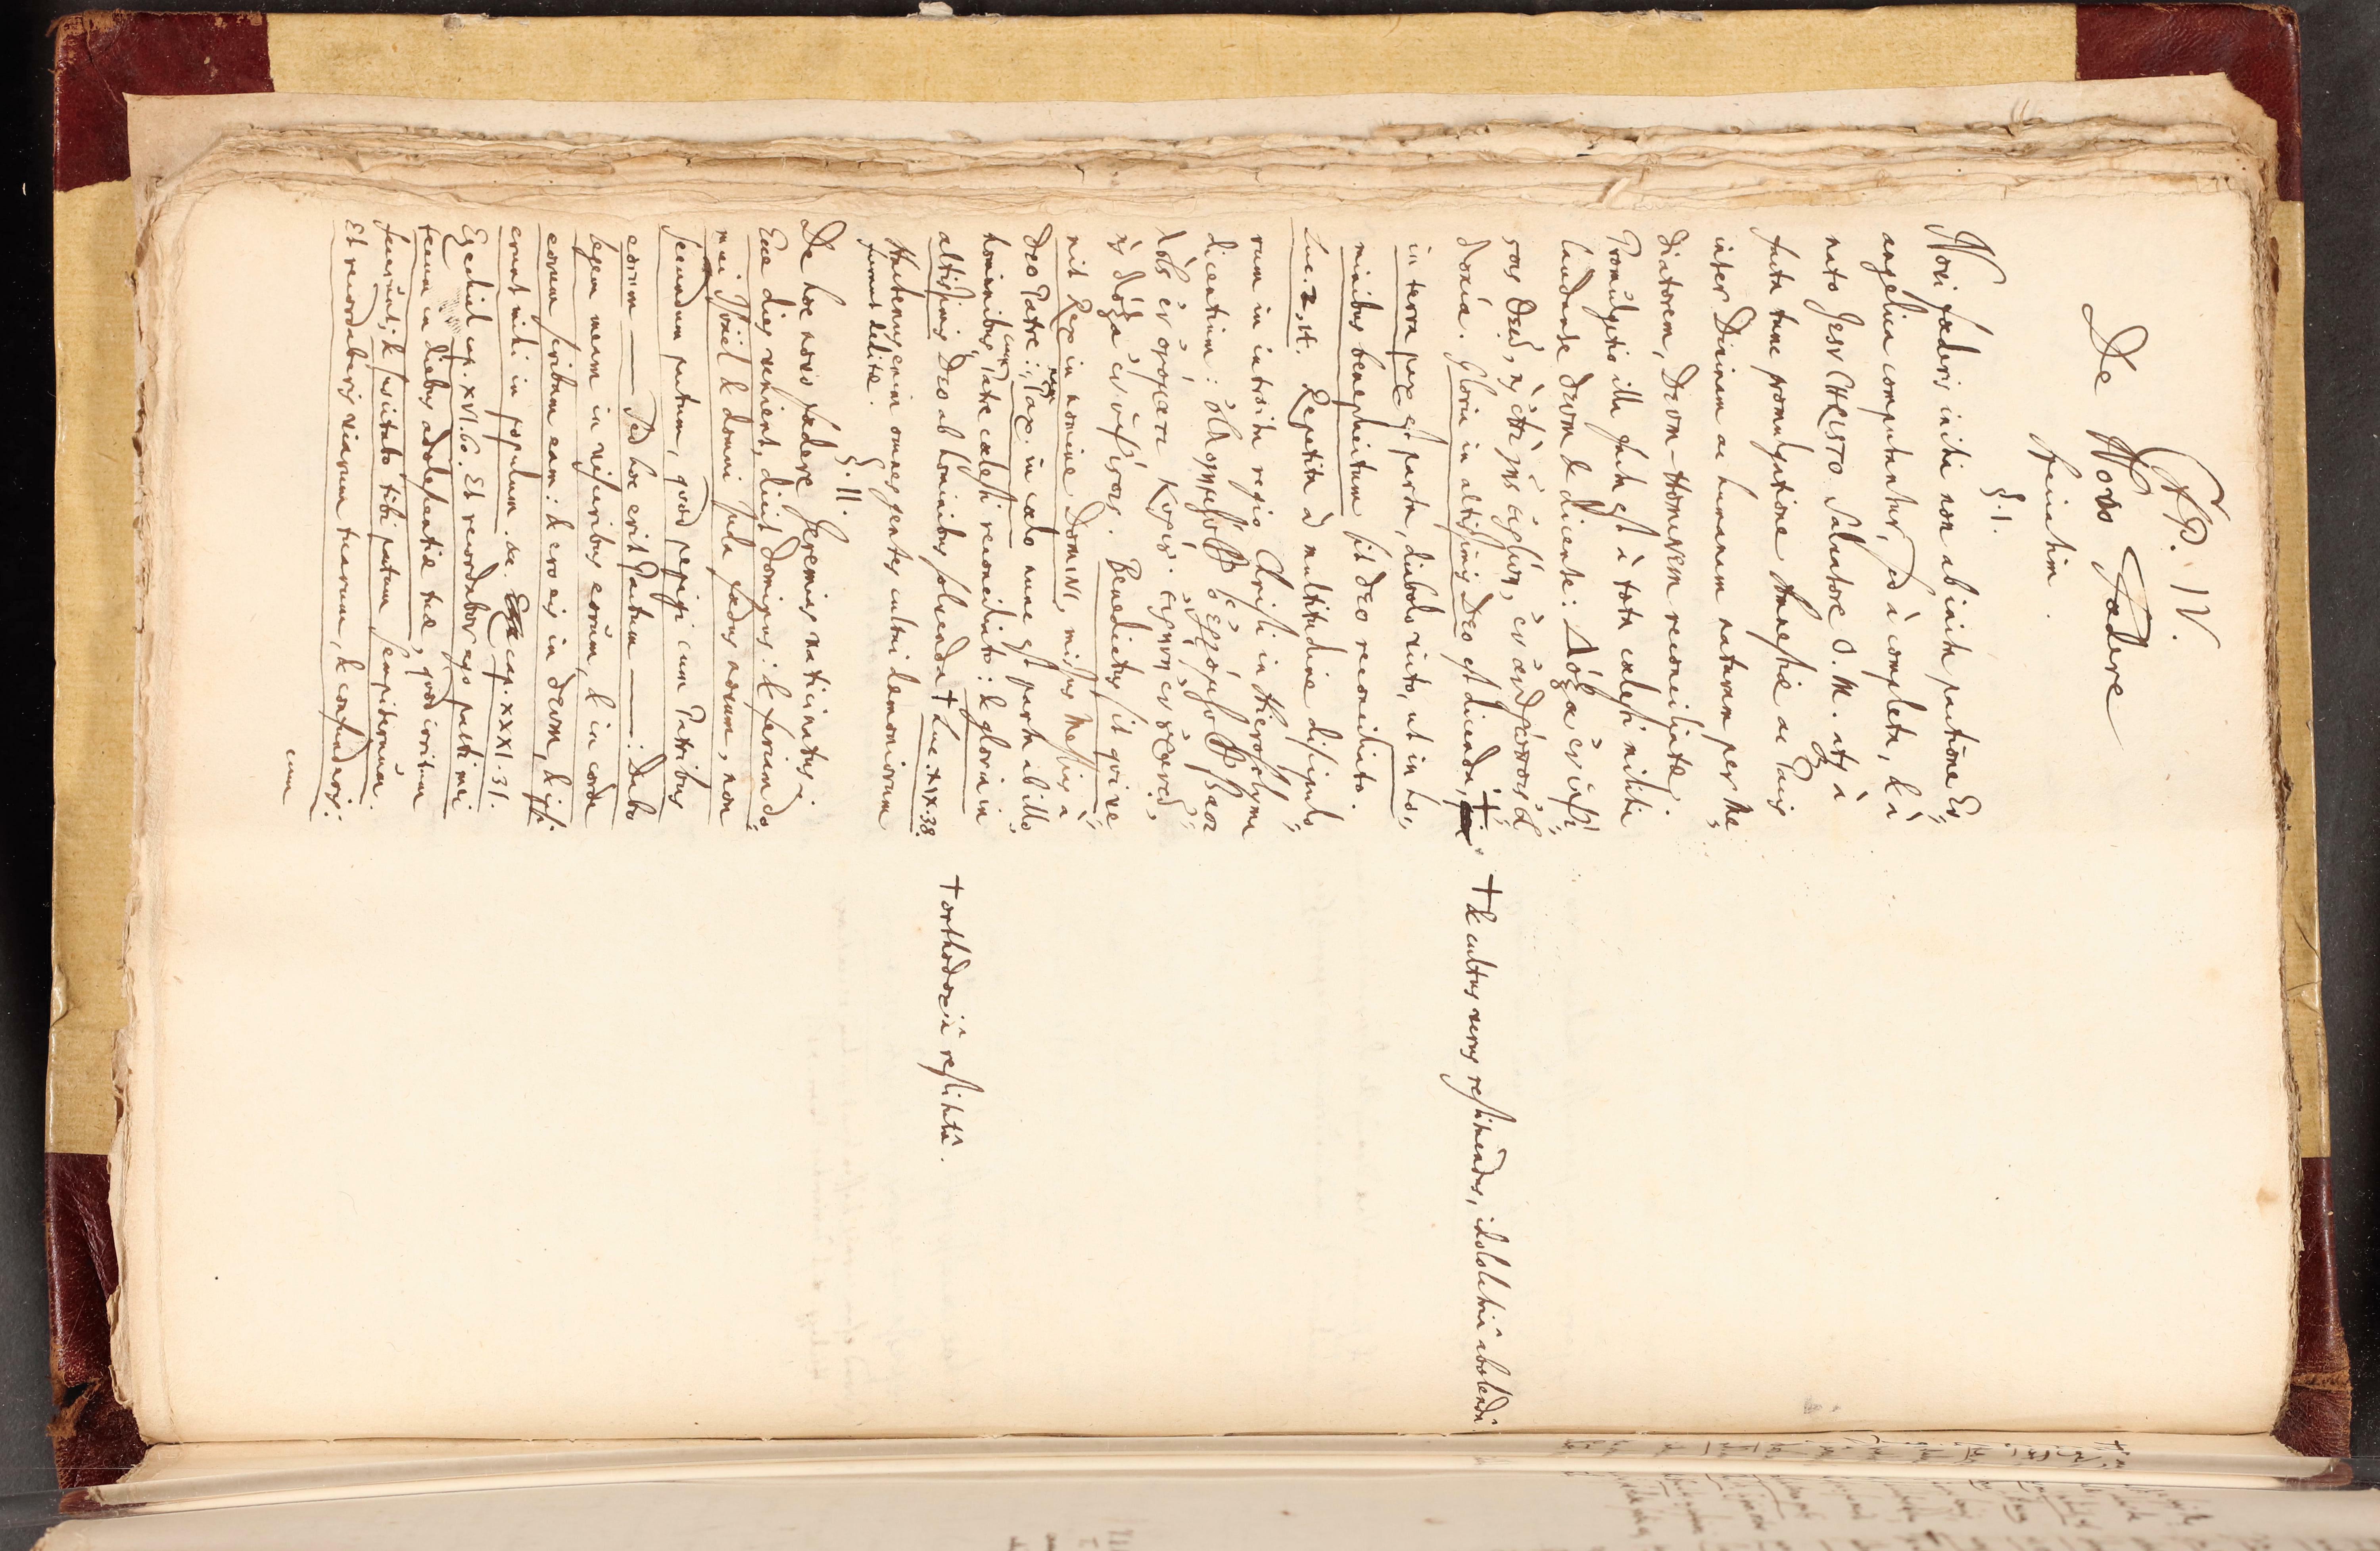 CAP. IV.
De Novo Fædere
speciatim.
§. 1.
Novi fæderis initia non ab inita pactione Ev=
angelica computantur, sed à completa, & à
nato JESV CHRISTO Salvatore O. M. atq; à
facta tunc promulgatione Amnestiæ ac Pacis
inter Divinam ac humanam naturam per Me=
diatorem, DEVM-HOMINEM reconciliatas.
Promulgatio illa facta est à tota cælesti militia
laudante DEVM & dicente: Δόξα ἐν ὑψί=
στοις Θεῷ, κỳ ἐπὶ γῆς εἰρήνη, ἐν ἀνθρώποις εὐ=
δοκία. Gloria in altissimis Deo est dicenda, †
in terra pax est parta, diabolo victo, ut in ho=
minibus beneplacitum sit DEO reconciliato.
Luc. 2, 14. Repetita à multitudine discipulo=
rum in introitu regio Christi in Hierosolyma
dicentium: ὀλογημένος ὁ ἐρχόμενος βασι
λεὺς ἐν ὀνόματι Κυρίου. εἰρήνη ἐν οὐρανῷ,
κỳ δόξα ἐν ὑψίστοις. Benedictus sit qui ve=
nit Rex in nomine DOMINI, missus Messias à
DEO Patre: nam Pax in cælo nunc est parta ab illo
hominibus cum Patre cælesti reconciliato: & gloria in
altissimis Deo ab hominibus solvenda † Luc. XIX. 38.
Hactenus enim omnes gentes cultui dæmoniorum
fuerunt deditæ.
§. 11.
De hoc novo fædere Jeremias vaticinatus:
Ecce dies venient, dicit Dominus: & feriam do=
mui Israel & domui Juda fædus novum, non
secundum pactum, quod pepigi cum Patribus
eorum —— Sed hoc erit Pactum ——: Dabo
legem meam in visceribus eorum, & in corde
eorum scribam eam: & ero eis in DEVM, & ipsi
erunt mihi in populum. &c. cap. XXXI. 31.
Ezechiel cap. XVI. 60. Et recordabor ego pacti mei
tecum in diebus adolescentiæ tuæ, quod irritum
fecisti, & suscitabo tibi pactum sempiternum.
Et recordaberis viarum tuarum, & confunderis:
cum
† & cultus verus restituendus, idololatriâ abolendâ
† orthodoxiâ restitutâ.